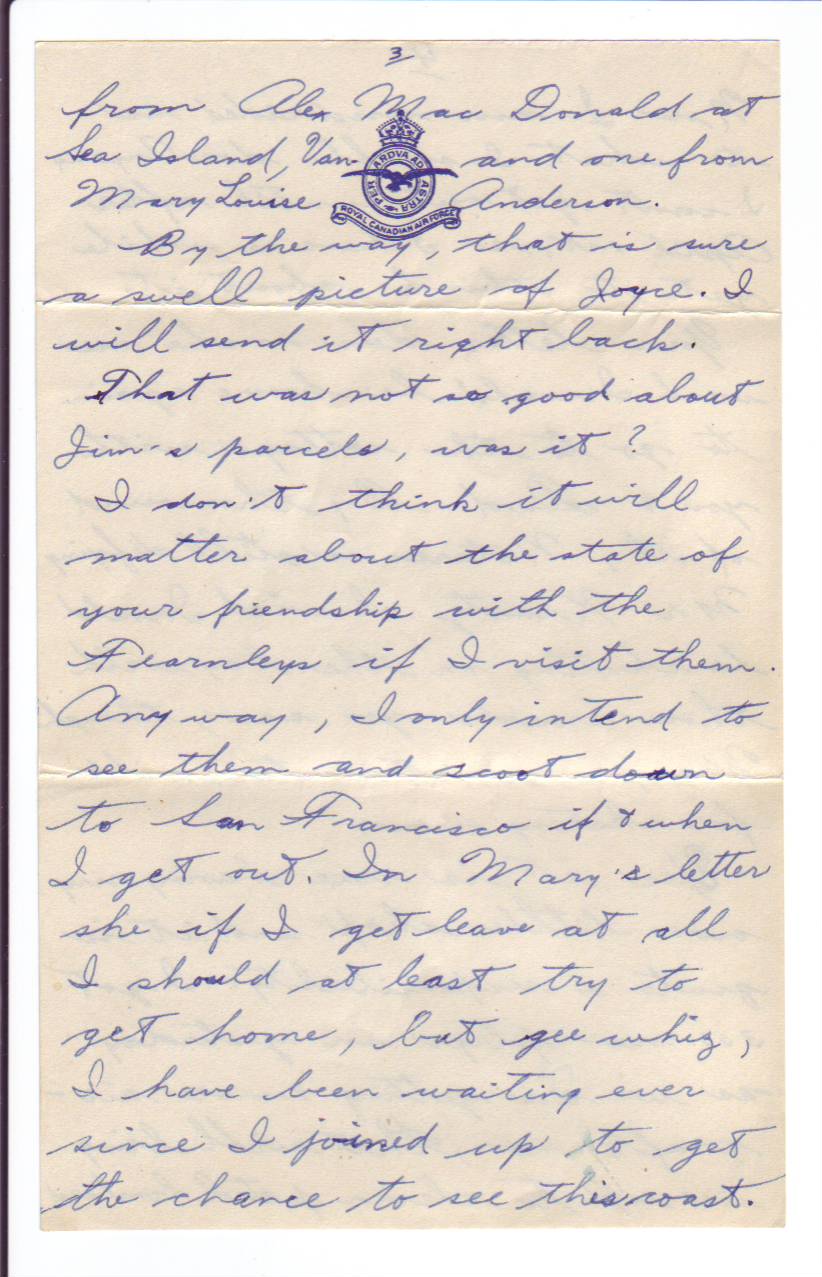 3
from Alex Mac Donald at
Sea Island, Van- and one from
Mary Louise Anderson.
PER ARDVA AD ASTRA
ROYAL CANADIAN AIR FORCE
By the way, that is sure
a swell picture of Joyce. I
will send it right back.
That was not so good about
Jim's parcels, was it?
I don't think it will
matter about the state of
your friendship with the
Fearnleys if I visit them.
Any way, I only intend to
see them and scoot down
to San Francisco if & when
I get out. In Mary's letter
she if I get leave at all
I should at least try to
get home, but gee whiz,
I have been waiting ever
since I joined up to get
the chance to see this coast.